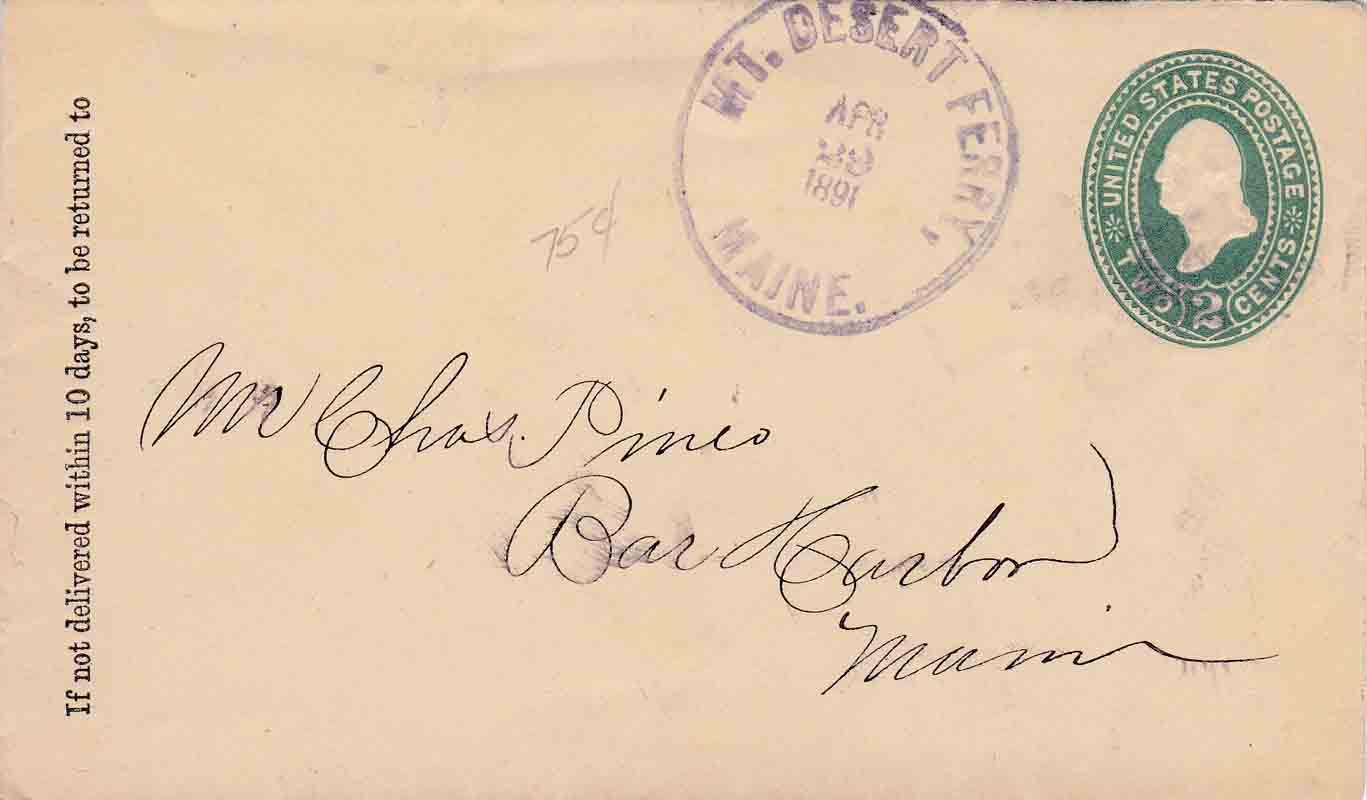 If not delivered within 10 days, to be returned to
MT. DESERT FERRY,
APR
1891
MAINE.
UNITED STATES POSTAGE
TWO 2 CENTS
75¢
Mr Chas. Pineo
Bar Harbor
Maine